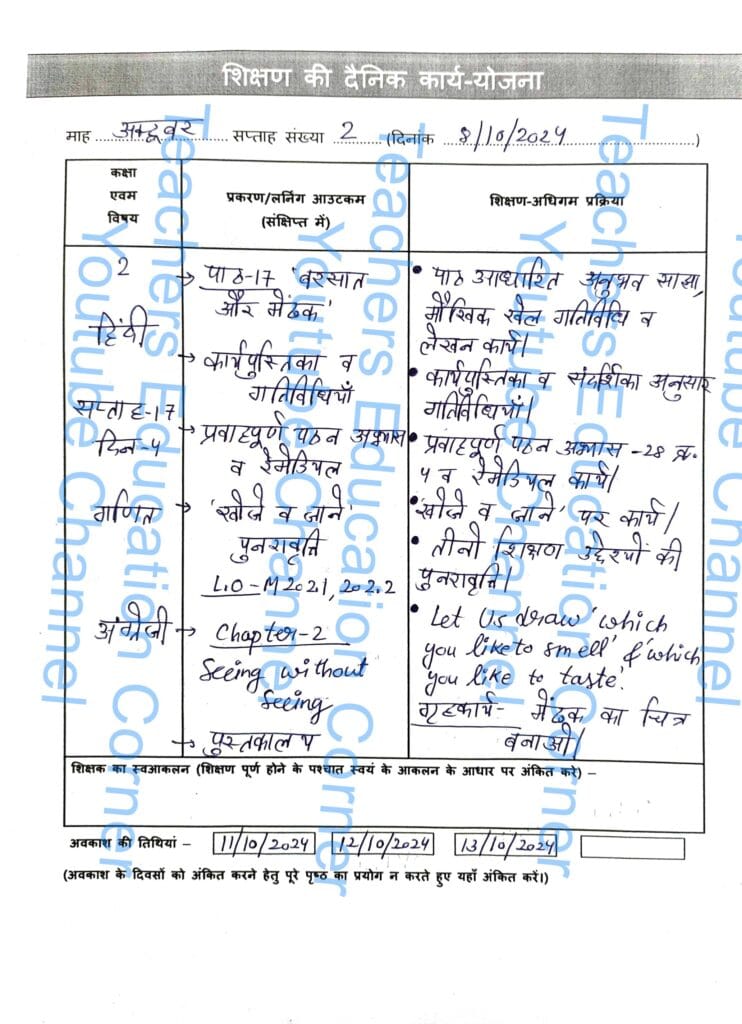 शिक्षण की दैनिक कार्य-योजना
माह अक्टूबर सप्ताह संख्या 2 (दिनांक 8/10/2024)
कक्षा
एवम
विषय
प्रकरण/लर्निंग आउटकम
(संक्षिप्त में)
शिक्षण-अधिगम प्रक्रिया
2
हिंदी
सप्ताह-17
दिन-4
→ पाठ-17 'बरसात
और मेंढक'
→ कार्यपुस्तिका व
गतिविधियाँ
→ प्रवाहपूर्ण पठन अभ्यास
व रेमेडियल
• पाठ आधारित अनुभव साझा,
मौखिक खेल गतिविधि व
लेखन कार्य।
• कार्यपुस्तिका व संदर्शिका अनुसार
गतिविधियाँ।
• प्रवाहपूर्ण पठन अभ्यास -28 क्र.
4 व रेमेडियल कार्य।
गणित
→ 'खोजे व जाने'
पुनरावृत्ति
L.O-M202.1, 202.2
• 'खोजे व जाने' पर कार्य।
• तीनो शिक्षण उद्देश्यों की
पुनरावृत्ति।
अंग्रेजी
→ Chapter-2
Seeing without
Seeing
→ पुस्तकालय
• Let Us draw 'which
you like to smell' & 'which
you like to taste'.
गृहकार्य- मेंढक का चित्र
बनाओ।
शिक्षक का स्वआकलन (शिक्षण पूर्ण होने के पश्चात स्वयं के आकलन के आधार पर अंकित करे) –
अवकाश की तिथियां – 11/10/2024 12/10/2024 13/10/2024
(अवकाश के दिवसों को अंकित करने हेतु पूरे पृष्ठ का प्रयोग न करते हुए यहाँ अंकित करें।)
Teachers Education Corner
Youtube Channel
Teachers Education Corner
Youtube Channel
Teachers Education Corner
Youtube Channel